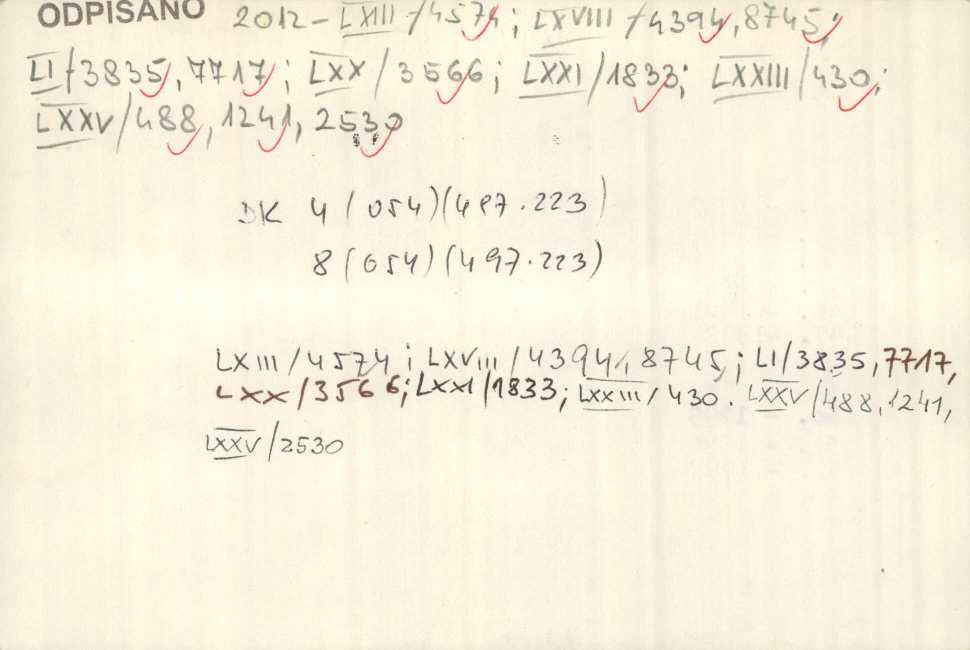 ODPISANO 2012 - LXIII/4574; LXVIII/4394, 8745;
LI/3835, 7717; LXX/3566; LXXI/1833; LXXIII/430;
LXXV/488, 1241, 2530
DK 4(054)(497.223)
8(054)(497.223)
LXIII/4574; LXVIII/4394, 8745; LI/3835, 7717,
LXX/3566; LXXI/1833; LXXIII/430. LXXV/488, 1241,
LXXV/2530